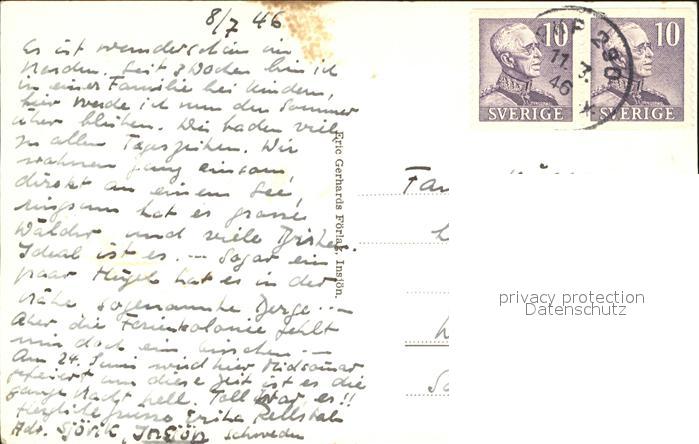 8/7 46
Es ist wunderschön im
Norden. Seit 3 Wochen bin ich
in einer Familie bei Kindern,
hier werde ich nun den Sommer
über bleiben. Wir baden viel
zu allen Tageszeiten. Wir
wohnen ganz einsam,
direkt an einem See,
ringsum hat es grosse
Wälder und viele Birken.
Ideal ist es. — Sogar ein
paar Hügel hat es in der
Nähe sogenannte Berge. —
Aber die Ferienkolonie fehlt
mir doch ein bisschen. —
Am 24. Juni wird hier Midsomar
gefeiert um diese Zeit ist es die
ganze Nacht hell. Toll war es!!
Herzliche Grüsse Erika Rellstab
Adr. Sjövik, Insjön Schweden
Eric Gerhards Förlag, Insjön.
10
SVERIGE
10
SVERIGE
290
11.7.
46
Fa
privacy protection
Datenschutz